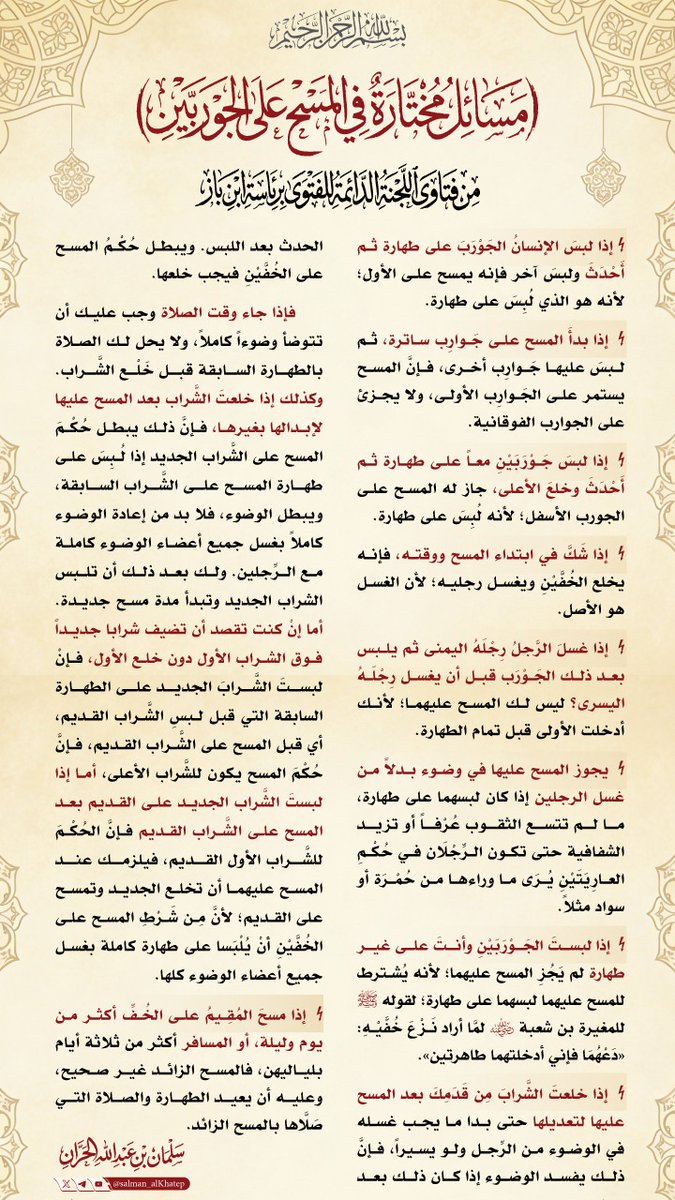 بسم الله الرحمن الرحيم
(مَسَائِلُ مُخْتَارَةٌ فِي المَسْحِ عَلَى الجَوْرَبَيْنِ)
مِن فَتَاوَى اللَّجْنَةِ الدَّائِمَةِ لِلفَتْوَى بِرِئَاسَةِ ابْنِ بَاز
إذا لبسَ الإنسانُ الجَوْرَبَ على طهارة ثم
أَحْدَثَ ولبسَ آخر فإنه يمسح على الأول؛
لأنه هو الذي لُبِسَ على طهارة.
إذا بدأَ المسح على جَوارِب ساترة، ثم
لبسَ عليها جَوارِب أخرى، فإنَّ المسح
يستمر على الجَوارِب الأولى، ولا يجزئ
على الجوارب الفوقانية.
إذا لبسَ جَوْرَبَيْنِ معاً على طهارة ثم
أَحْدَثَ وخلعَ الأعلى، جاز له المسح على
الجورب الأسفل؛ لأنه لُبِسَ على طهارة.
إذا شَكَّ في ابتداء المسح ووقته، فإنه
يخلع الخُفَّيْنِ ويغسل رجليه؛ لأن الغسل
هو الأصل.
إذا غسلَ الرَّجلُ رِجْلَهُ اليمنى ثم يلبس
بعد ذلك الجَوْرَب قبل أن يغسل رِجْلَهُ
اليسرى؟ ليس لك المسح عليهما؛ لأنك
أدخلت الأولى قبل تمام الطهارة.
يجوز المسح عليها في وضوء بدلاً من
غسل الرجلين إذا كان لبسهما على طهارة،
ما لم تتسع الثقوب عُرْفاً أو تزيد
الشفافية حتى تكون الرِّجْلَان في حُكْمِ
العارِيَتَيْنِ يُرَى ما وراءها من حُمْرَة أو
سواد مثلاً.
إذا لبستَ الجَوْرَبَيْنِ وأنتَ على غير
طهارة لم يَجُزِ المسح عليهما؛ لأنه يُشترط
للمسح عليهما لبسهما على طهارة؛ لقوله ﷺ
للمغيرة بن شعبة رضي الله عنه لمَّا أراد نَزْعَ خُفَّيْهِ:
«دَعْهُمَا فإني أدخلتهما طاهرتين».
إذا خلعتَ الشَّرابَ مِن قَدَمِكَ بعد المسح
عليها لتعديلها حتى بدا ما يجب غسله
في الوضوء من الرِّجل ولو يسيراً، فإنَّ
ذلك يفسد الوضوء إذا كان ذلك بعد
الحدث بعد اللبس. ويبطل حُكْمُ المسح
على الخُفَّيْنِ فيجب خلعها.
فإذا جاء وقت الصلاة وجب عليك أن
تتوضأ وضوءاً كاملاً، ولا يحل لك الصلاة
بالطهارة السابقة قبل خَلْع الشَّراب.
وكذلك إذا خلعتَ الشَّراب بعد المسح عليها
لإبدالها بغيرها، فإنَّ ذلك يبطل حُكْمَ
المسح على الشَّراب الجديد إذا لُبِسَ على
طهارة المسح على الشَّراب السابقة،
ويبطل الوضوء، فلا بد من إعادة الوضوء
كاملاً بغسل جميع أعضاء الوضوء كاملة
مع الرِّجلين. ولك بعد ذلك أن تلبس
الشراب الجديد وتبدأ مدة مسح جديدة.
أما إنْ كنت تقصد أن تضيف شرابا جديداً
فوق الشراب الأول دون خلع الأول، فإنْ
لبستَ الشَّرابَ الجديد على الطهارة
السابقة التي قبل لبسِ الشَّراب القديم،
أي قبل المسح على الشَّراب القديم، فإنَّ
حُكْمَ المسح يكون للشَّراب الأعلى، أما إذا
لبستَ الشَّراب الجديد على القديم بعد
المسح على الشَّراب القديم فإنَّ الحُكْمَ
للشَّراب الأول القديم، فيلزمك عند
المسح عليهما أن تخلع الجديد وتمسح
على القديم؛ لأنَّ مِن شَرْطِ المسح على
الخُفَّيْنِ أنْ يُلْبَسا على طهارة كاملة بغسل
جميع أعضاء الوضوء كلها.
إذا مسحَ المُقِيمُ على الخُفِّ أكثر من
يوم وليلة، أو المسافر أكثر من ثلاثة أيام
بلياليهن، فالمسح الزائد غير صحيح،
وعليه أن يعيد الطهارة والصلاة التي
صَلَّاها بالمسح الزائد.
سَلْمَان بن عَبدِ اللهِ الحَرَّان
@salman_alKhatep